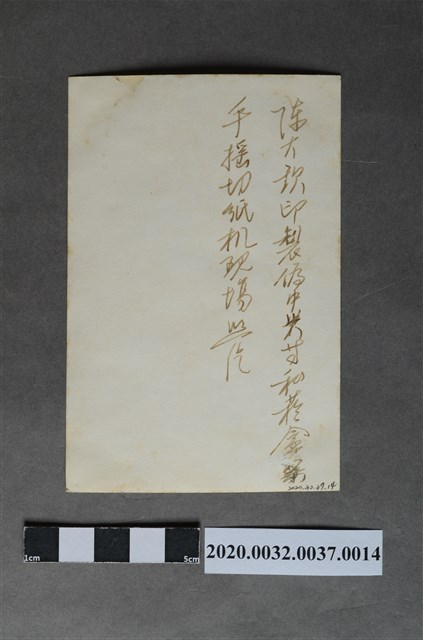 陈大欽印製偽中央甘私菸盒案
手搖切紙机現場照片
2020.32.37.14
1cm 5cm
2020.0032.0037.0014